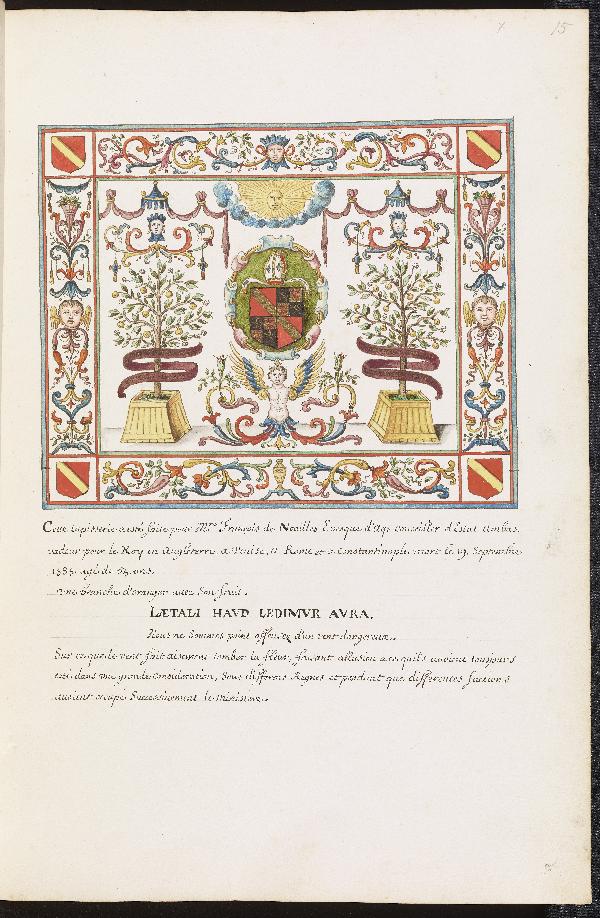 15
Cette tapisserie a esté faite pour Mre François de Noailles Evesque d'Aqs Conseiller d'Estat Ambas-
sadeur pour le Roy en Angleterre a Venise, a Rome et a Constantinople, mort le 19. Septembre
1585. agé de ans.
Une branche d'oranger avec son fruit.
LÆTALI HAVD LEDIMVR AVRA.
Nous ne sommes point offensez d'un vent dangereux.
Sur ce que le vent fait aisement tomber la fleur, faisant allusion a ce qu'ils avoient toujours
esté dans une grande consideration, sous differens Regnes et pendant que differentes factions
avoient occupé successivement le ministere.